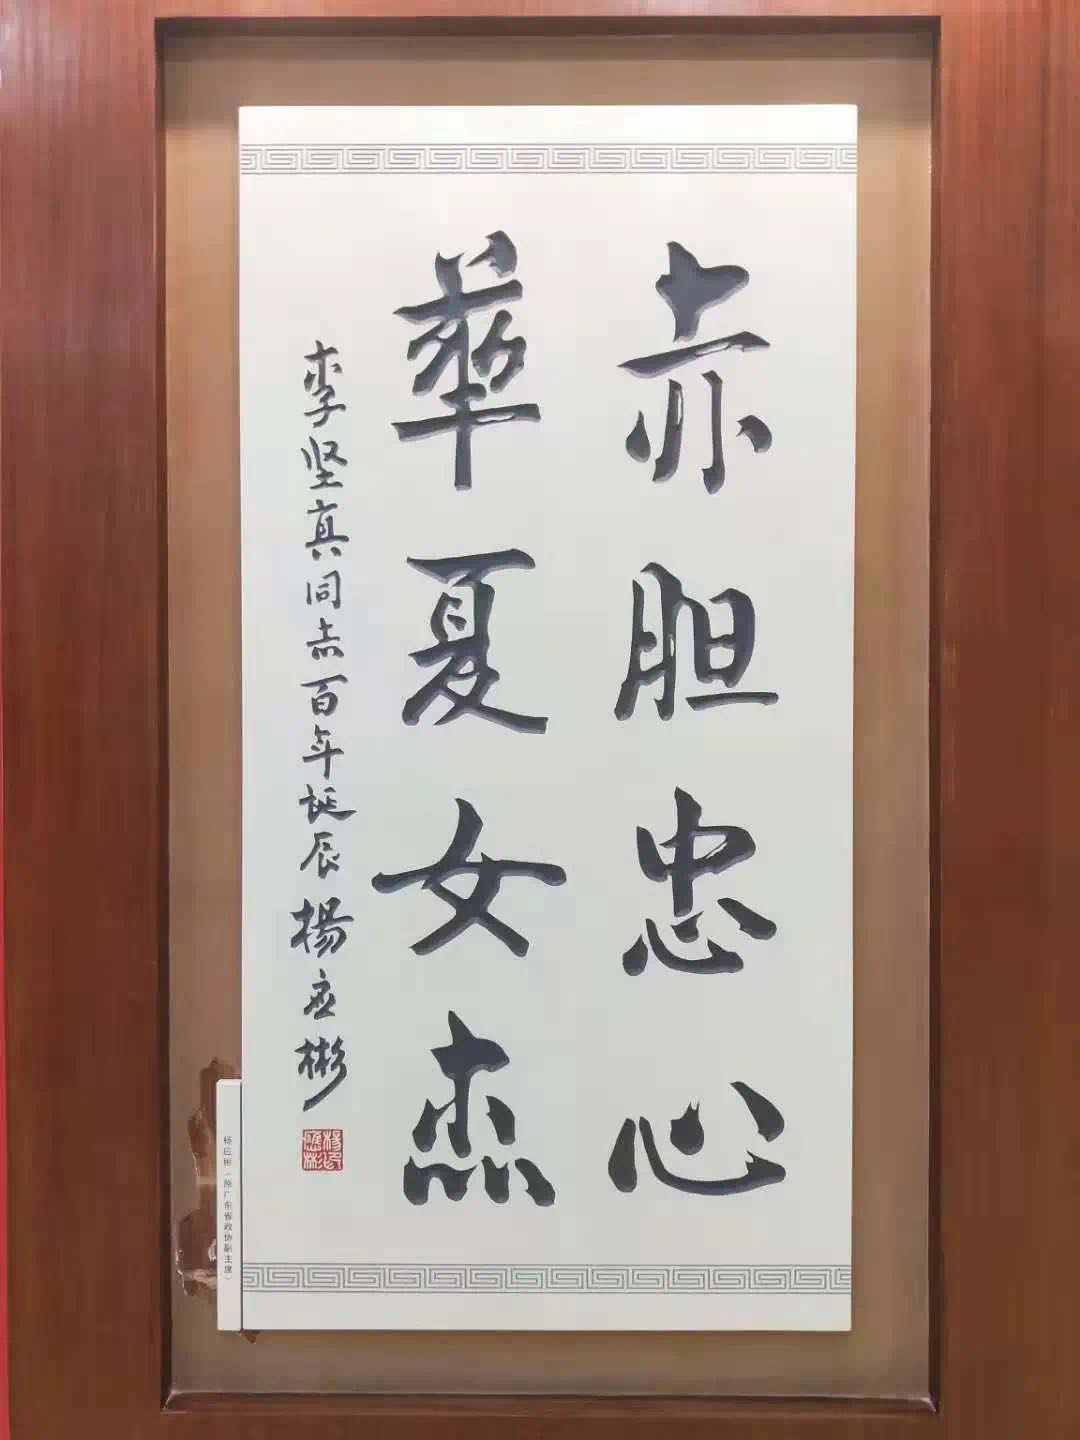 赤胆忠心
華夏女杰
李坚真同志百年诞辰 楊应彬
杨应彬（原广东省政协副主席）